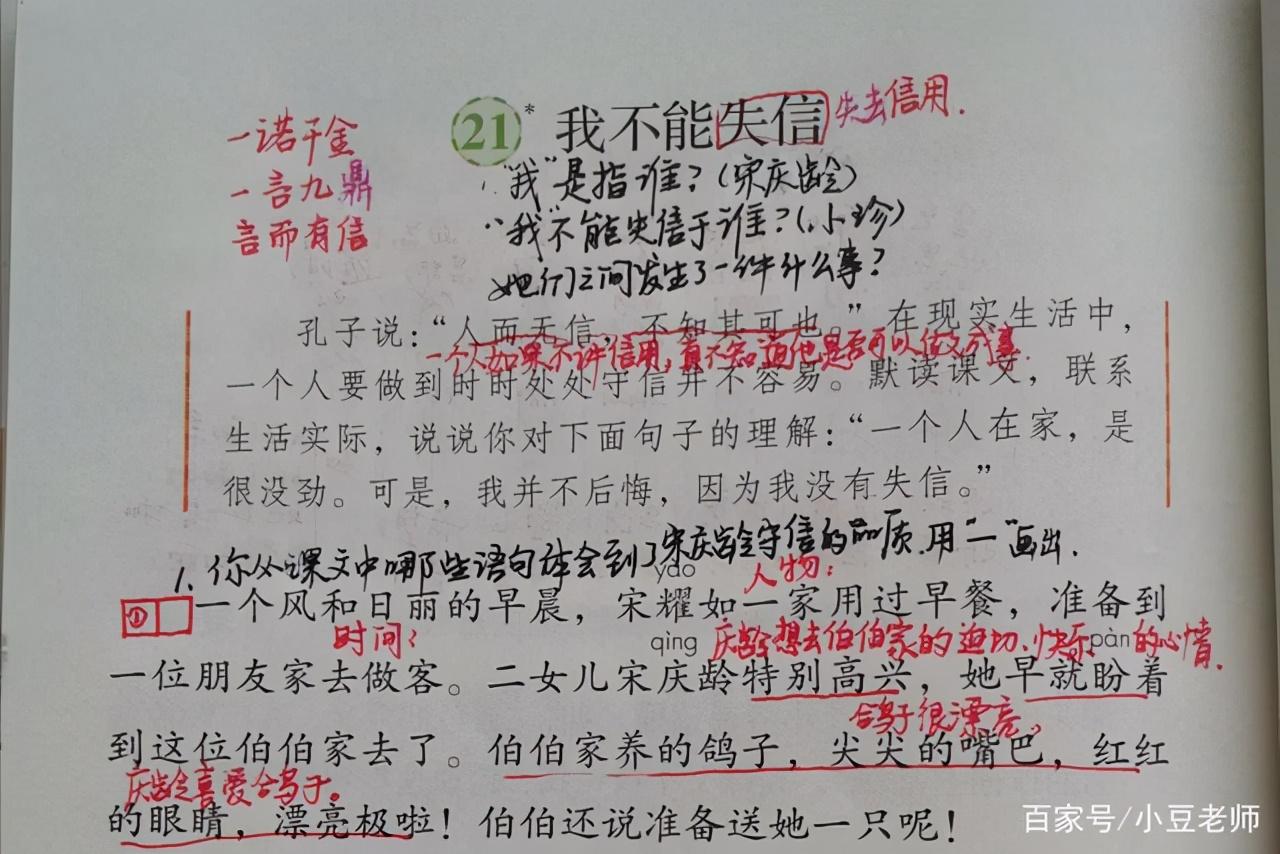 21* 我不能失信 失去信用.
一诺千金
一言九鼎
言而有信
“我”是指谁?(宋庆龄)
“我”不能失信于谁?(小珍)
她们之间发生了一件什么事?
孔子说:“人而无信,不知其可也。”在现实生活中,
一个人如果不讲信用,真不知道他是否可以做又成事.
一个人要做到时时处处守信并不容易。默读课文,联系
生活实际,说说你对下面句子的理解:“一个人在家,是
很没劲。可是,我并不后悔,因为我没有失信。”
1. 你从课文中哪些语句体会到了宋庆龄守信的品质.用“一”画出.
yào
人物:
① 一个风和日丽的早晨,宋耀如一家用过早餐,准备到
时间:
qìng
庆龄想去伯伯家的迫切、快乐的心情.
pàn
一位朋友家去做客。二女儿宋庆龄特别高兴,她早就盼着
鸽子很漂亮。
到这位伯伯家去了。伯伯家养的鸽子,尖尖的嘴巴,红红
庆龄喜爱鸽子。
的眼睛,漂亮极啦!伯伯还说准备送她一只呢!
百家号/小豆老师